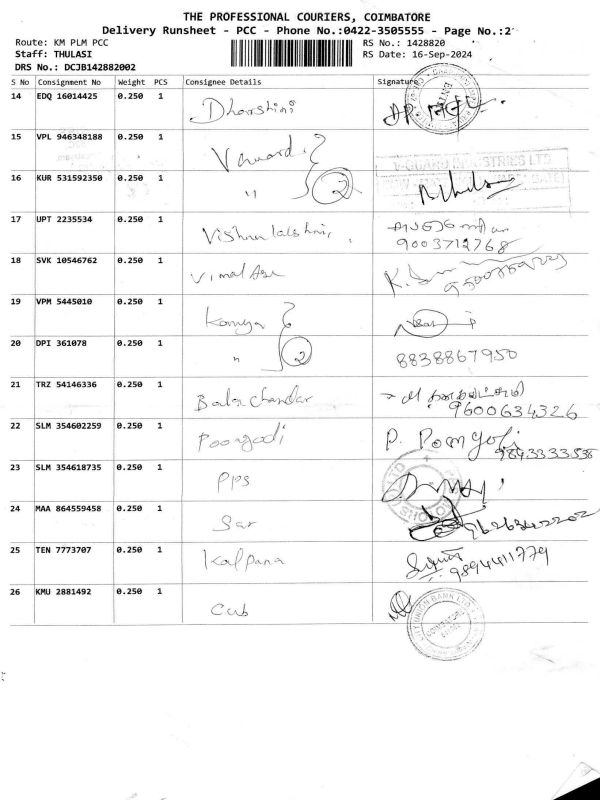 THE PROFESSIONAL COURIERS, COIMBATORE
Delivery Runsheet - PCC - Phone No.:0422-3505555 - Page No.:2
Route: KM PLM PCC RS No.: 1428820
Staff: THULASI RS Date: 16-Sep-2024
DRS No.: DCJB142882002
S No Consignment No Weight PCS Consignee Details Signature
14 EDQ 16014425 0.250 1 Dharshini
15 VPL 946348188 0.250 1
V-GUARD INDUSTRIES LTD
16 KUR 531592350 0.250 1 " 2
17 UPT 2235534 0.250 1
9003712768
18 SVK 10546762 0.250 1
19 VPM 5445010 0.250 1 Kamya
20 DPI 361078 0.250 1 " 2 8838867950
21 TRZ 54146336 0.250 1 Bala Chandar
9600634326
22 SLM 354602259 0.250 1 Poongodi P. Poongodi
9843333538
23 SLM 354618735 0.250 1 PPS
24 MAA 864559458 0.250 1 Sar
25 TEN 7773707 0.250 1 Kalpana
9894411779
26 KMU 2881492 0.250 1 Cub
CITY UNION BANK LTD
COIMBATORE